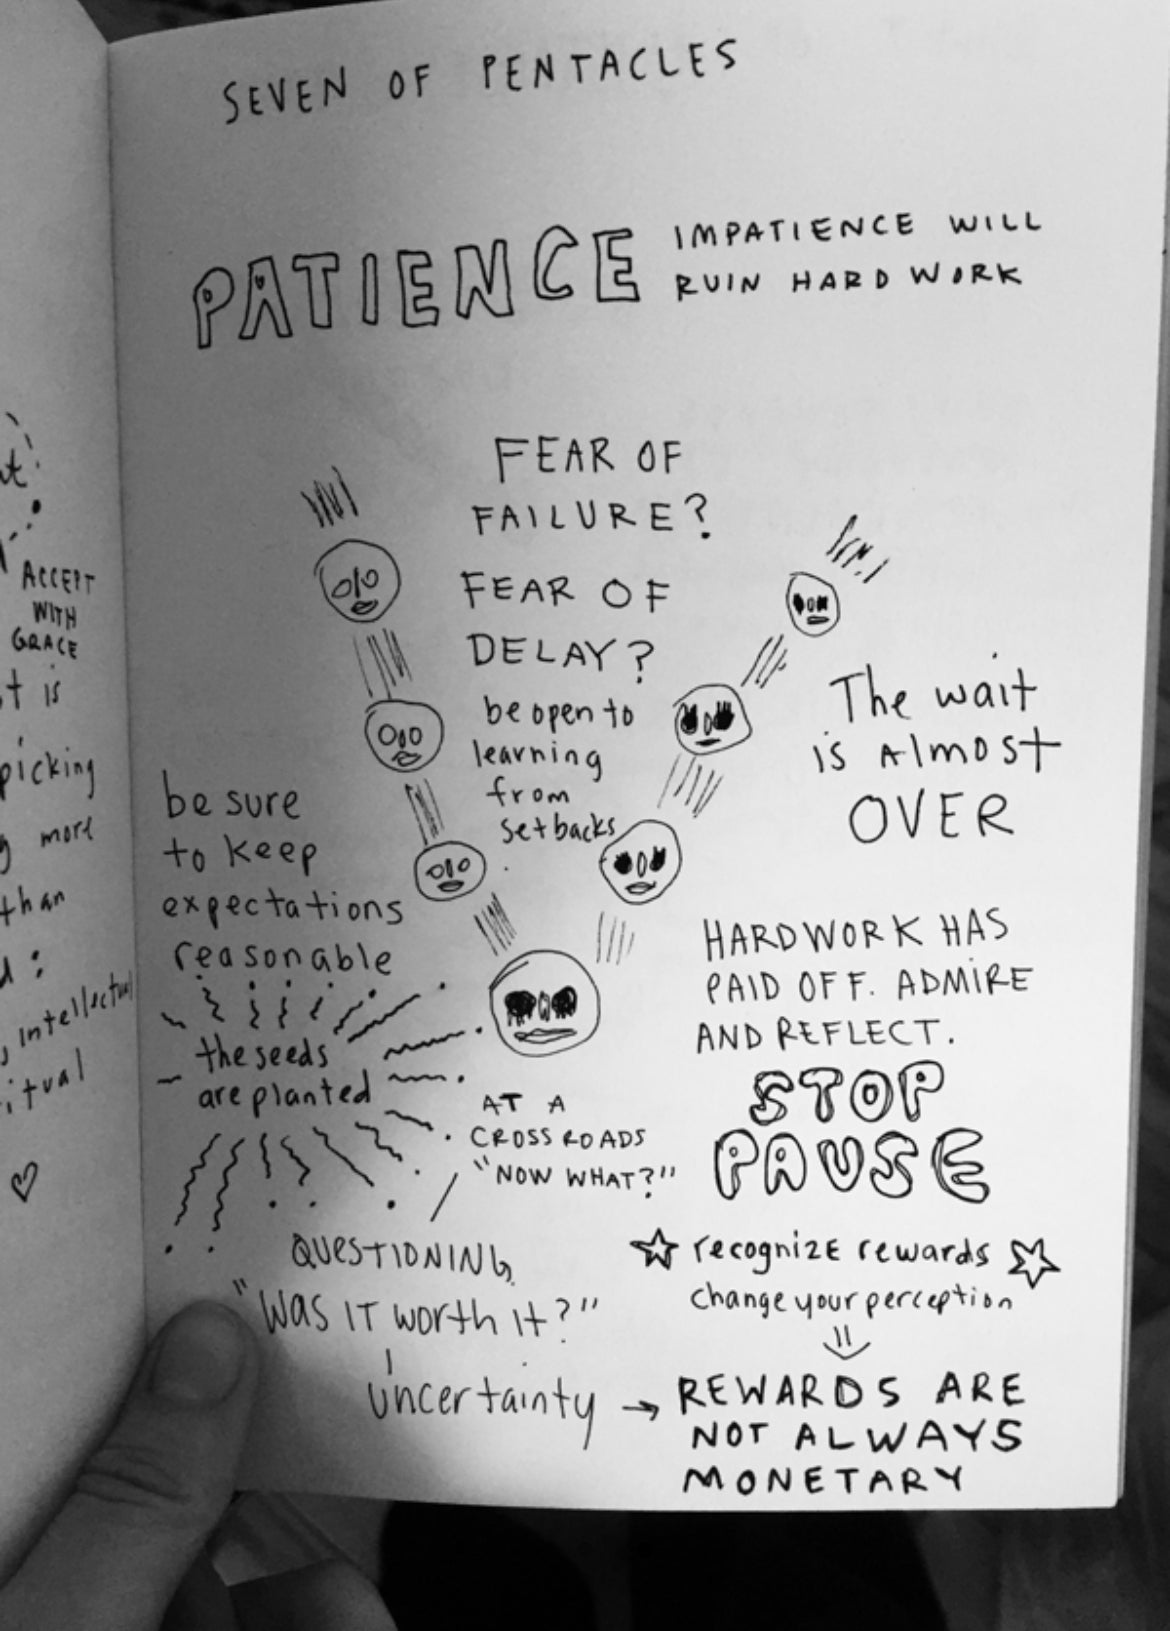 SEVEN OF PENTACLES
PATIENCE
IMPATIENCE WILL
RUIN HARD WORK
FEAR OF
FAILURE?
FEAR OF
DELAY?
be open to
learning
from
setbacks
The wait
is Almost
OVER
be sure
to keep
expectations
reasonable
the seeds
are planted
HARDWORK HAS
PAID OFF. ADMIRE
AND REFLECT.
STOP
PAUSE
AT A
CROSSROADS
"NOW WHAT?"
QUESTIONING
"WAS IT worth it?"
uncertainty →
☆ recognize rewards ☆
change your perception
REWARDS ARE
NOT ALWAYS
MONETARY
ACCEPT
WITH
GRACE
is
picking
more
than
intellectual